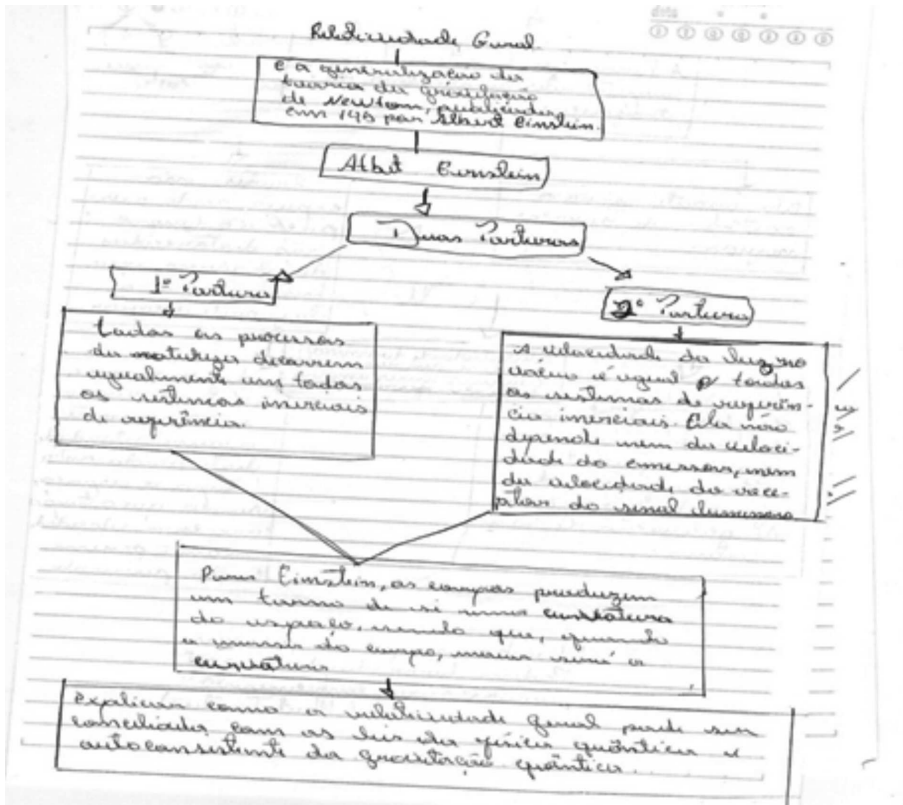 Relatividade Geral
É a generalização da
teoria da gravitação
de Newton, publicada
em 195 por Albert Einstein.
Albert Einstein
Duas Posturas
1º Postura
2º Postura
todos os processos
da natureza decorrem
igualmente em todos
os sistemas inerciais
de referência.
A velocidade da luz no
vácuo é igual p/ todos
os sistemas de referên-
cia inerciais. Ela não
depende nem da veloci-
dade do emissor, nem
da velocidade do rece-
ptor do sinal luminoso
Para Einstein, os corpos produzem
em torno de si uma curvatura
do espaço, sendo que, quando
a massa do corpo, será a
curvatura
Explicar como a relatividade geral pode ser
conciliada com as leis da física quântica e
autoconsistente da gravitação quântica.